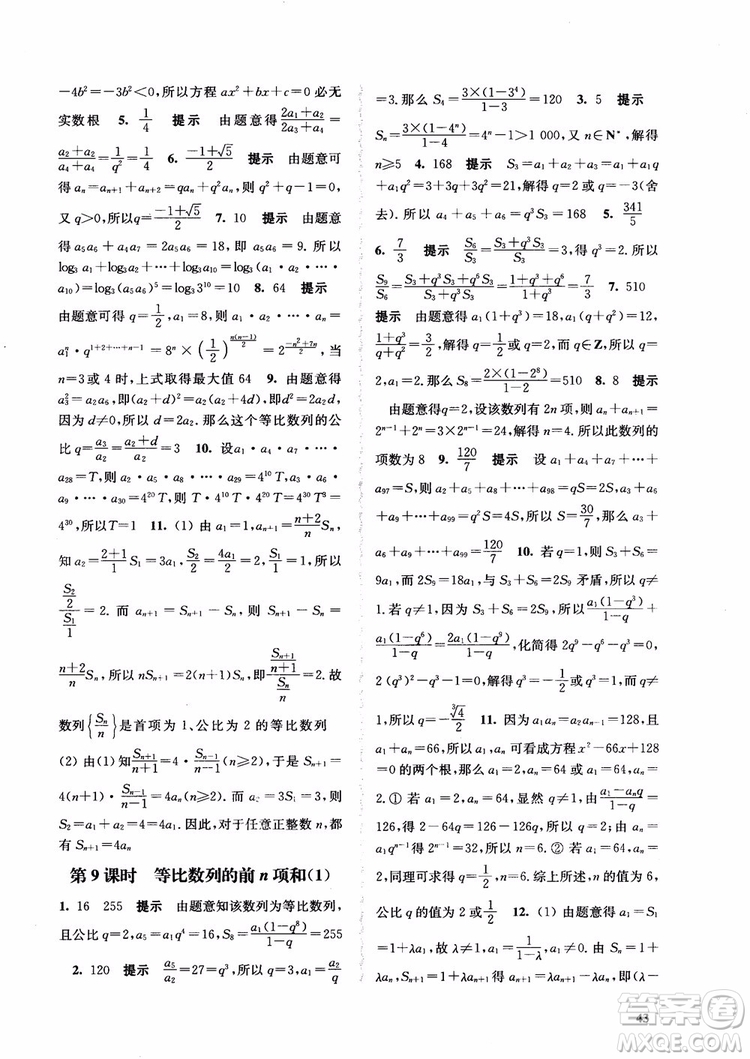 -4b²=-3b²<0,所以方程 ax²+bx+c=0 必无
实数根 5. 1/4 提示 由题意得(2a₁+a₂)/(2a₃+a₄)=
(a₂+a₂)/(a₄+a₄)=1/q²=1/4 6. (-1+√5)/2 提示 由题意可
得 aₙ=aₙ₊₁+aₙ₊₂=qaₙ+q²aₙ,所以 q²+q=1.
又 q>0,所以 q=(-1+√5)/2 7. 10 提示 由题意
得 a₅a₆+a₄a₇=2a₅a₆=18,所以 a₅a₆=9. 所以
log₃a₁+log₃a₂+…+log₃a₁₀=log₃(a₁·a₂·…·
a₁₀)=log₃(a₅a₆)⁵=log₃3¹⁰=10 8. 64 提示
由题意可得 q=1/2,a₁=8,所以 a₁a₂·…·aₙ=
a₁ⁿ·q^(1+2+…+n-1)=8ⁿ×(1/2)^(n(n-1)/2)=2^((-n²+7n)/2),当
n=3 或 4 时,上式取得最大值 64 9. 由题意得
a₃²=a₂a₆,所以(a₂+d)²=a₂(a₂+4d),d²=2a₂d,
因为 d≠0,所以 d=2a₂. 那么这个等比数列的公
比 q=a₃/a₂=(a₂+d)/a₂=3 10. 设a₁·a₄·a₇·…·
a₂₈=T,则a₂·a₅·a₈·…·a₂₉=4¹⁰T,a₃·a₆·
a₉·…·a₃₀=4²⁰T,所以 a₁·a₂·a₃·…·a₃₀=
4³⁰,所以T=1 11. (1) 由 a₁=1,aₙ₊₁=(n+2)/n Sₙ,
知 a₂=(2+1)/1 S₁=3a₁,S₂/2=4a₁/2=2,S₁/1=1,所以
(S₂/2)/(S₁/1)=2. 而 aₙ₊₁=Sₙ₊₁-Sₙ,则 Sₙ₊₁-Sₙ=
(n+2)/n Sₙ,所以 nSₙ₊₁=2(n+1)Sₙ,(Sₙ₊₁/(n+1))/(Sₙ/n)=2. 故
数列{Sₙ/n}是首项为 1、公比为 2 的等比数列
(2) 由(1)知 Sₙ₊₁/(n+1)=4·Sₙ₋₁/(n-1)(n≥2),于是 Sₙ₊₁=
4(n+1)·Sₙ₋₁/(n-1)=4aₙ(n≥2). 又 a₂=3S₁=3,则
S₂=a₁+a₂=4=4a₁. 因此,对于任意正整数n≥1,
都有 Sₙ₊₁=4aₙ
第 9 课时 等比数列的前 n 项和(1)
1. 16 255 提示 由题意知该数列为等比数列,
且公比 q=2,a₅=a₁q⁴=16,S₈=a₁(1-q⁸)/(1-q)=255
2. 120 提示 a₅/a₂=27=q³,所以 q=3,a₁=a₂/q
=3. 那么 S₄=3×(1-3⁴)/(1-3)=120 3. 5 提示
Sₙ=3×(1-4ⁿ)/(1-4)=4ⁿ-1>1 000,又 n∈N*,解得
n≥5 4. 168 提示 S₃=a₁+a₂+a₃=a₁+a₁q
+a₁q²=3+3q+3q²=21,解得 q=2 或 q=-3(舍
去). 所以 a₄+a₅+a₆=q³S₃=168 5. 341/5
6. 7/3 提示 S₆/S₃=(S₃+q³S₃)/S₃=1+q³=3,所以
S₉/S₆=(S₃+q³S₃+q⁶S₃)/(S₃+q³S₃)=(1+q³+q⁶)/(1+q³)=7/3 7. 510
提示 由题意得 a₁(1+q³)=18,a₁(q+q²)=12,
(1+q³)/(q+q²)=3/2,所以 q=1/2 或 2. 因为 q∈Z,所以 q=
2,a₁=2,S₈=2×(1-2⁸)/(1-2)=510 8. 8 提示
由题意得 q=2,设该数列有 2n 项,则 aₙ+aₙ₊₁=
2ⁿ⁻¹+2ⁿ=3×2ⁿ⁻¹=24,解得 n=4. 所以此数列的
项数为 8 9. 120/7 提示 设 a₁+a₄+a₇+…+
a₉₇=S,则 a₂+a₅+…+a₉₈=qS=2S,a₃+a₆+
a₉+…+a₉₉=q²S=4S,所以 S=30/7,那么 a₃+
a₆+a₉+…+a₉₉=120/7 10. 若 q=1,则 S₃+S₆=
9a₁,而 2S₉=18a₁,与 S₃+S₆=2S₉ 矛盾,所以 q≠
1. 若 q≠1,由 S₃+S₆=2S₉,所以a₁(1-q³)/(1-q)+
a₁(1-q⁶)/(1-q)=2a₁(1-q⁹)/(1-q),化简得 2q⁶-q³-1=0,
即 2(q³)²-q³-1=0,解得 q³=-1/2或 q³=1. 因为
q≠1,所以 q=-∛4/2 11. 因为 a₁aₙ=a₂aₙ₋₁=128,
又 a₁+aₙ=66,所以 a₁,aₙ 可看成方程 x²-66x+128
=0 的两个根,解得 a₁=2,aₙ=64 或 a₁=64,aₙ=
2. ① 若 a₁=2,aₙ=64,显然 q≠1. 由(a₁-aₙq)/(1-q)=
126,得 2-64q=126-126q,所以 q=2. 由 aₙ=
a₁qⁿ⁻¹,得 2ⁿ=64,所以 n=6. ② 若 a₁=64,aₙ=
2,同理可求得 q=1/2,n=6. 综上所述,n 的值为 6,
公比 q 的值为 2 或1/2 12. (1) 由题意得 a₁=S₁
=1+λa₁,故 λ≠1,a₁=1/(1-λ),a₁≠0. 由 Sₙ=1+
λaₙ,Sₙ₊₁=1+λaₙ₊₁得 aₙ₊₁=λaₙ₊₁-λaₙ,即(λ-
43
答案圈